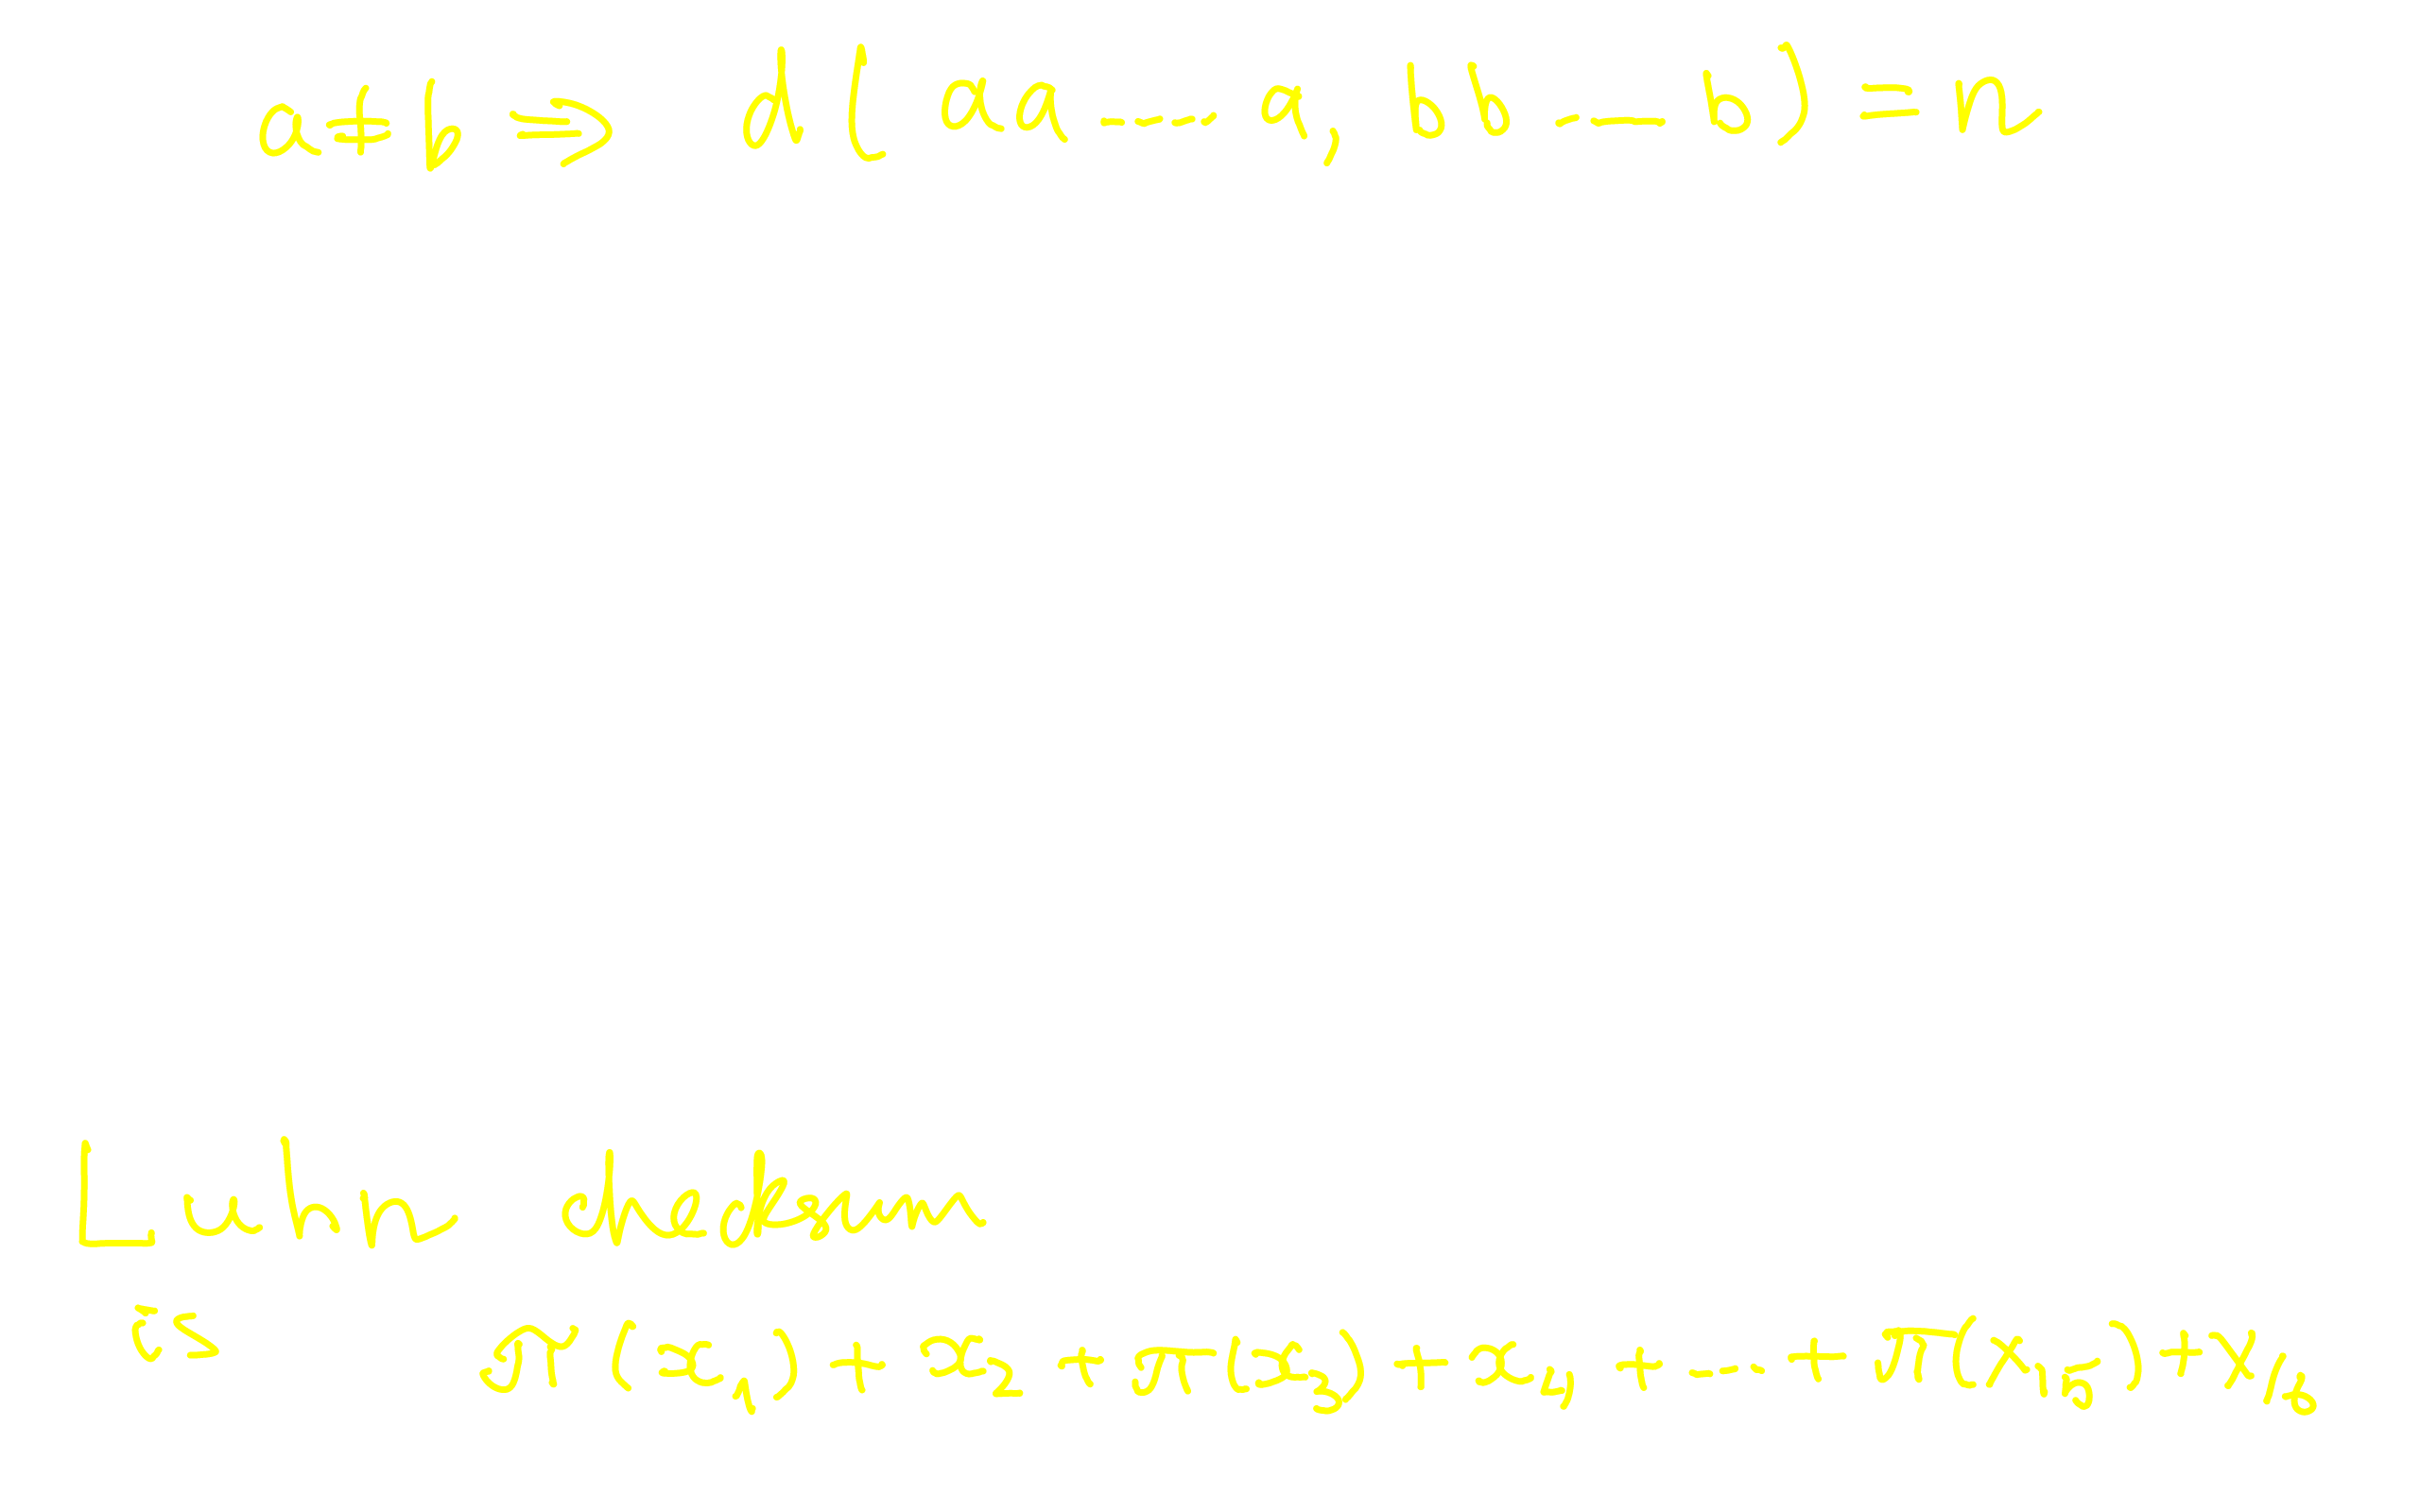 a ≠ b ⇒ d( aa ---- a, bb ---- b) = n
Luhn checksum
is π(x₁) + x₂ + π(x₃) + x₄, + --- + π(x₁₅) + x₁₆